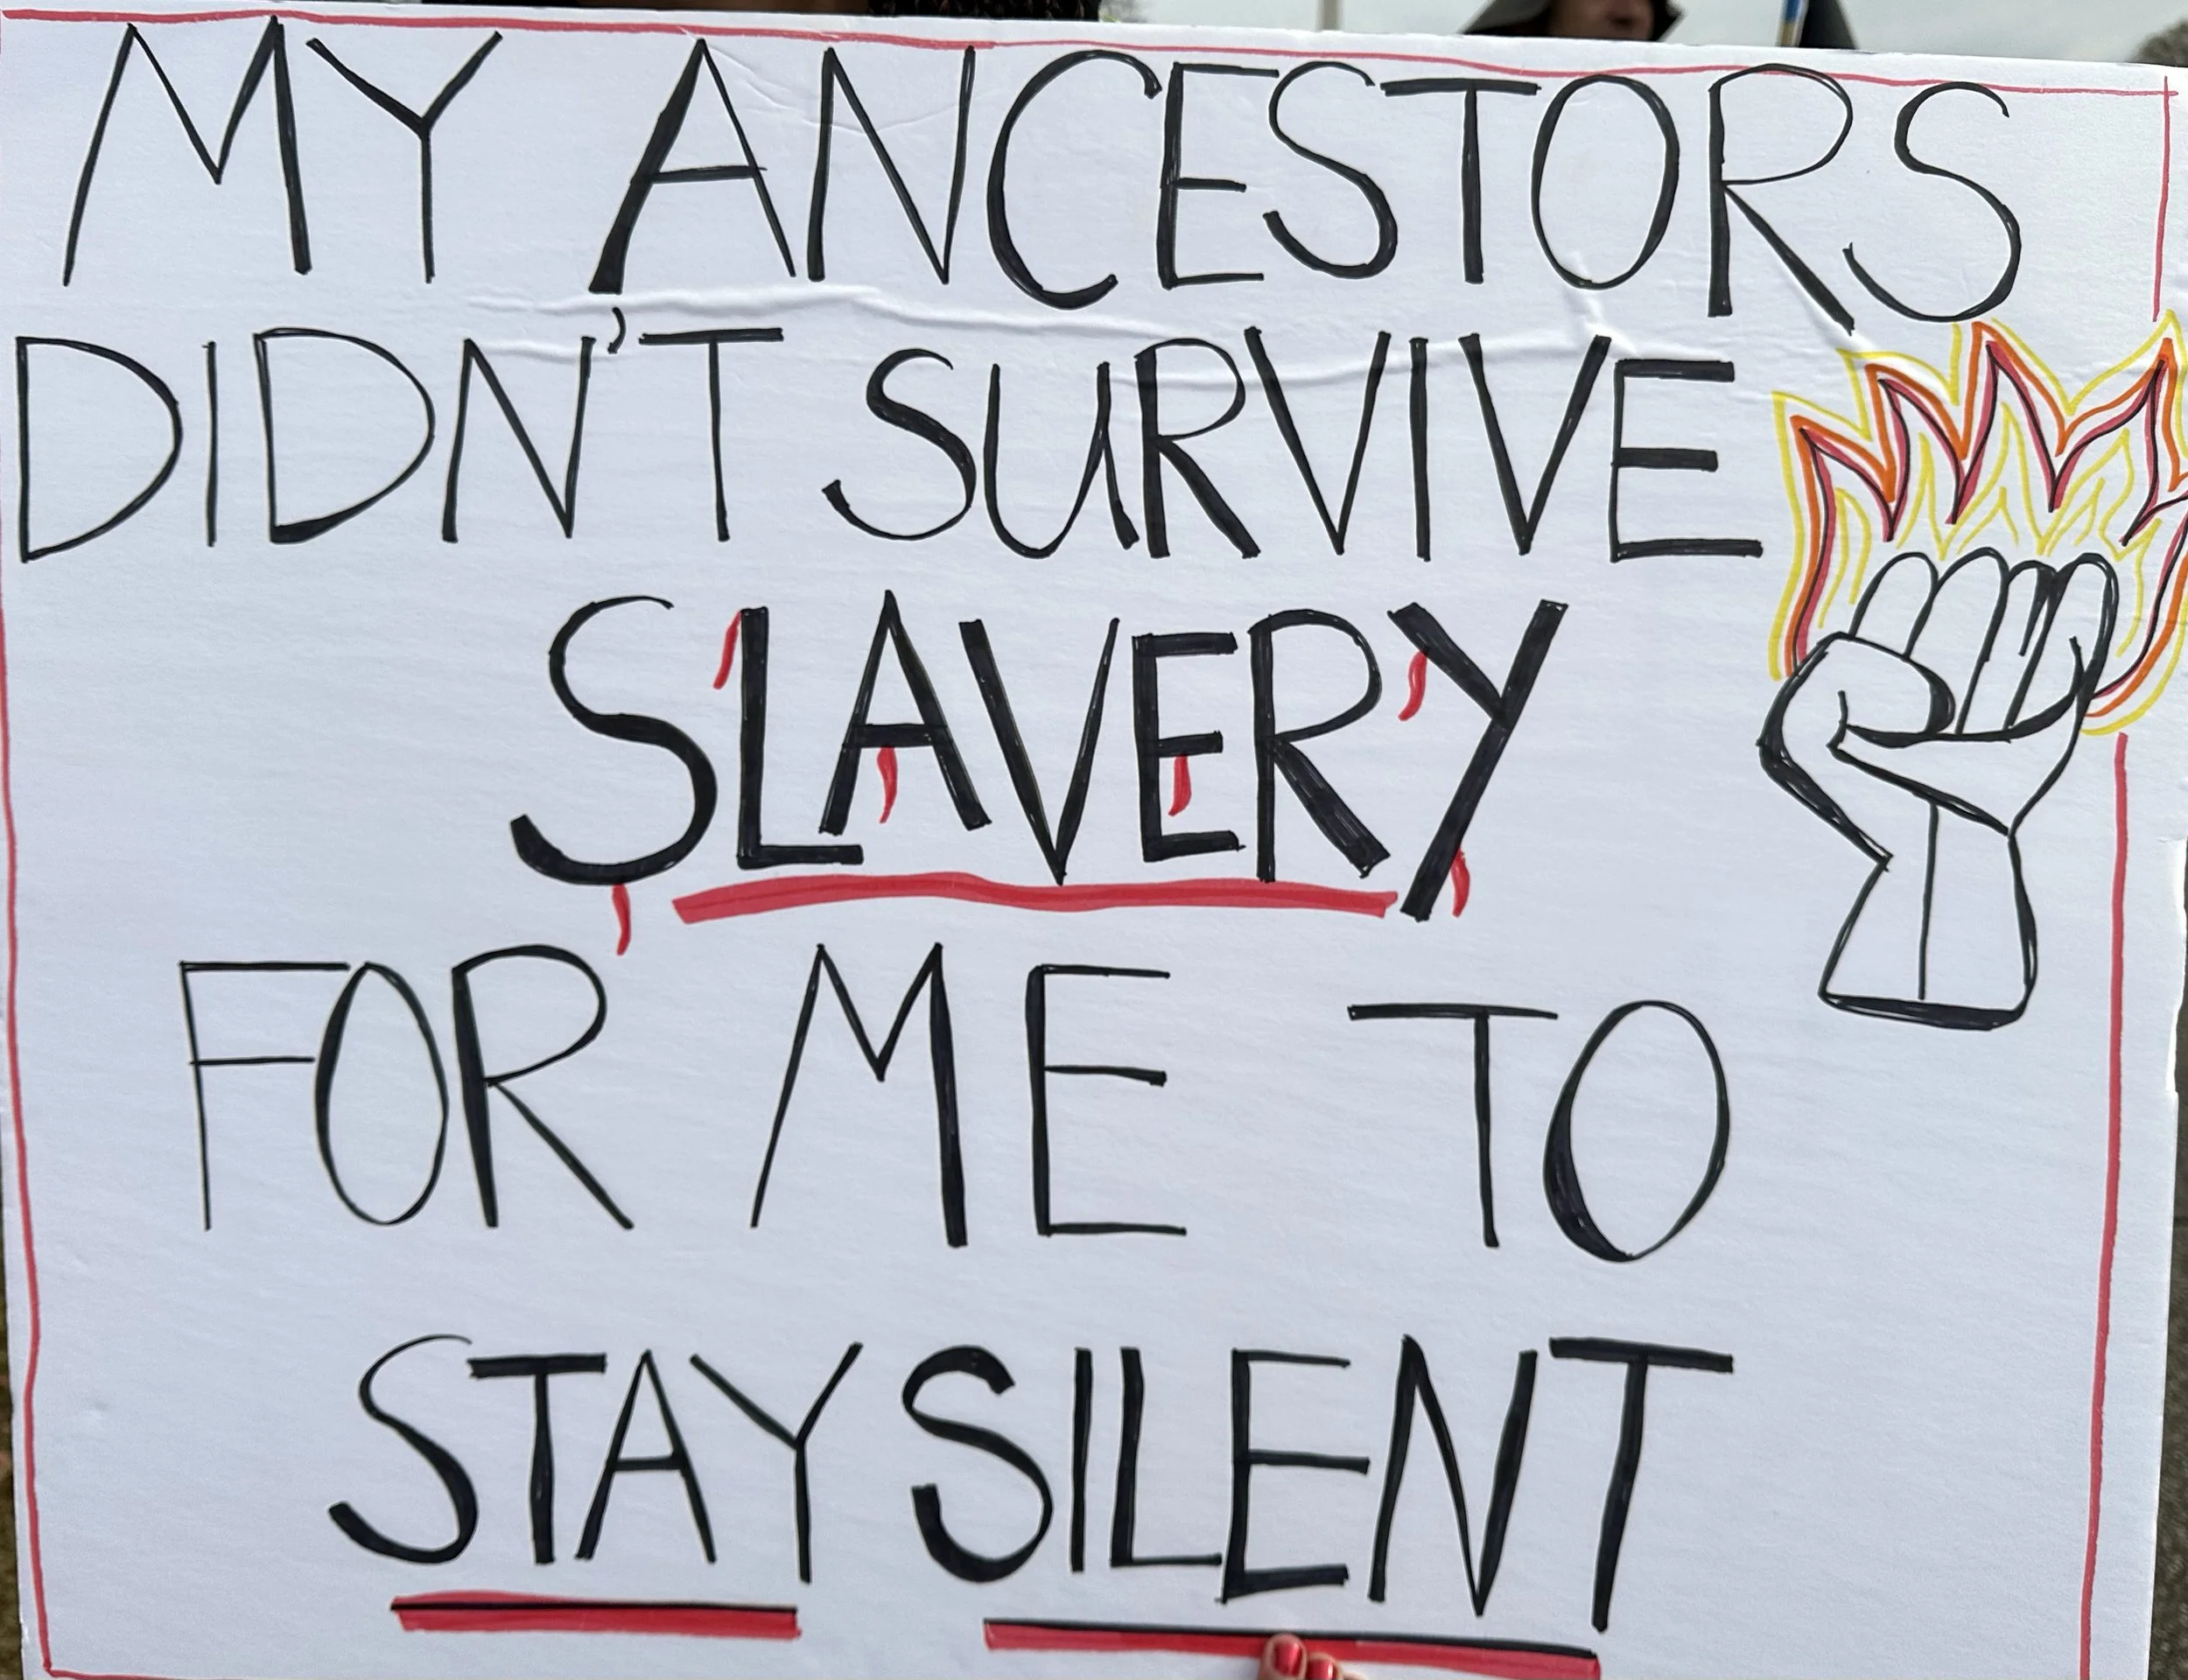 MY ANCESTORS
DIDN'T SURVIVE
SLAVERY
FOR ME TO
STAY SILENT